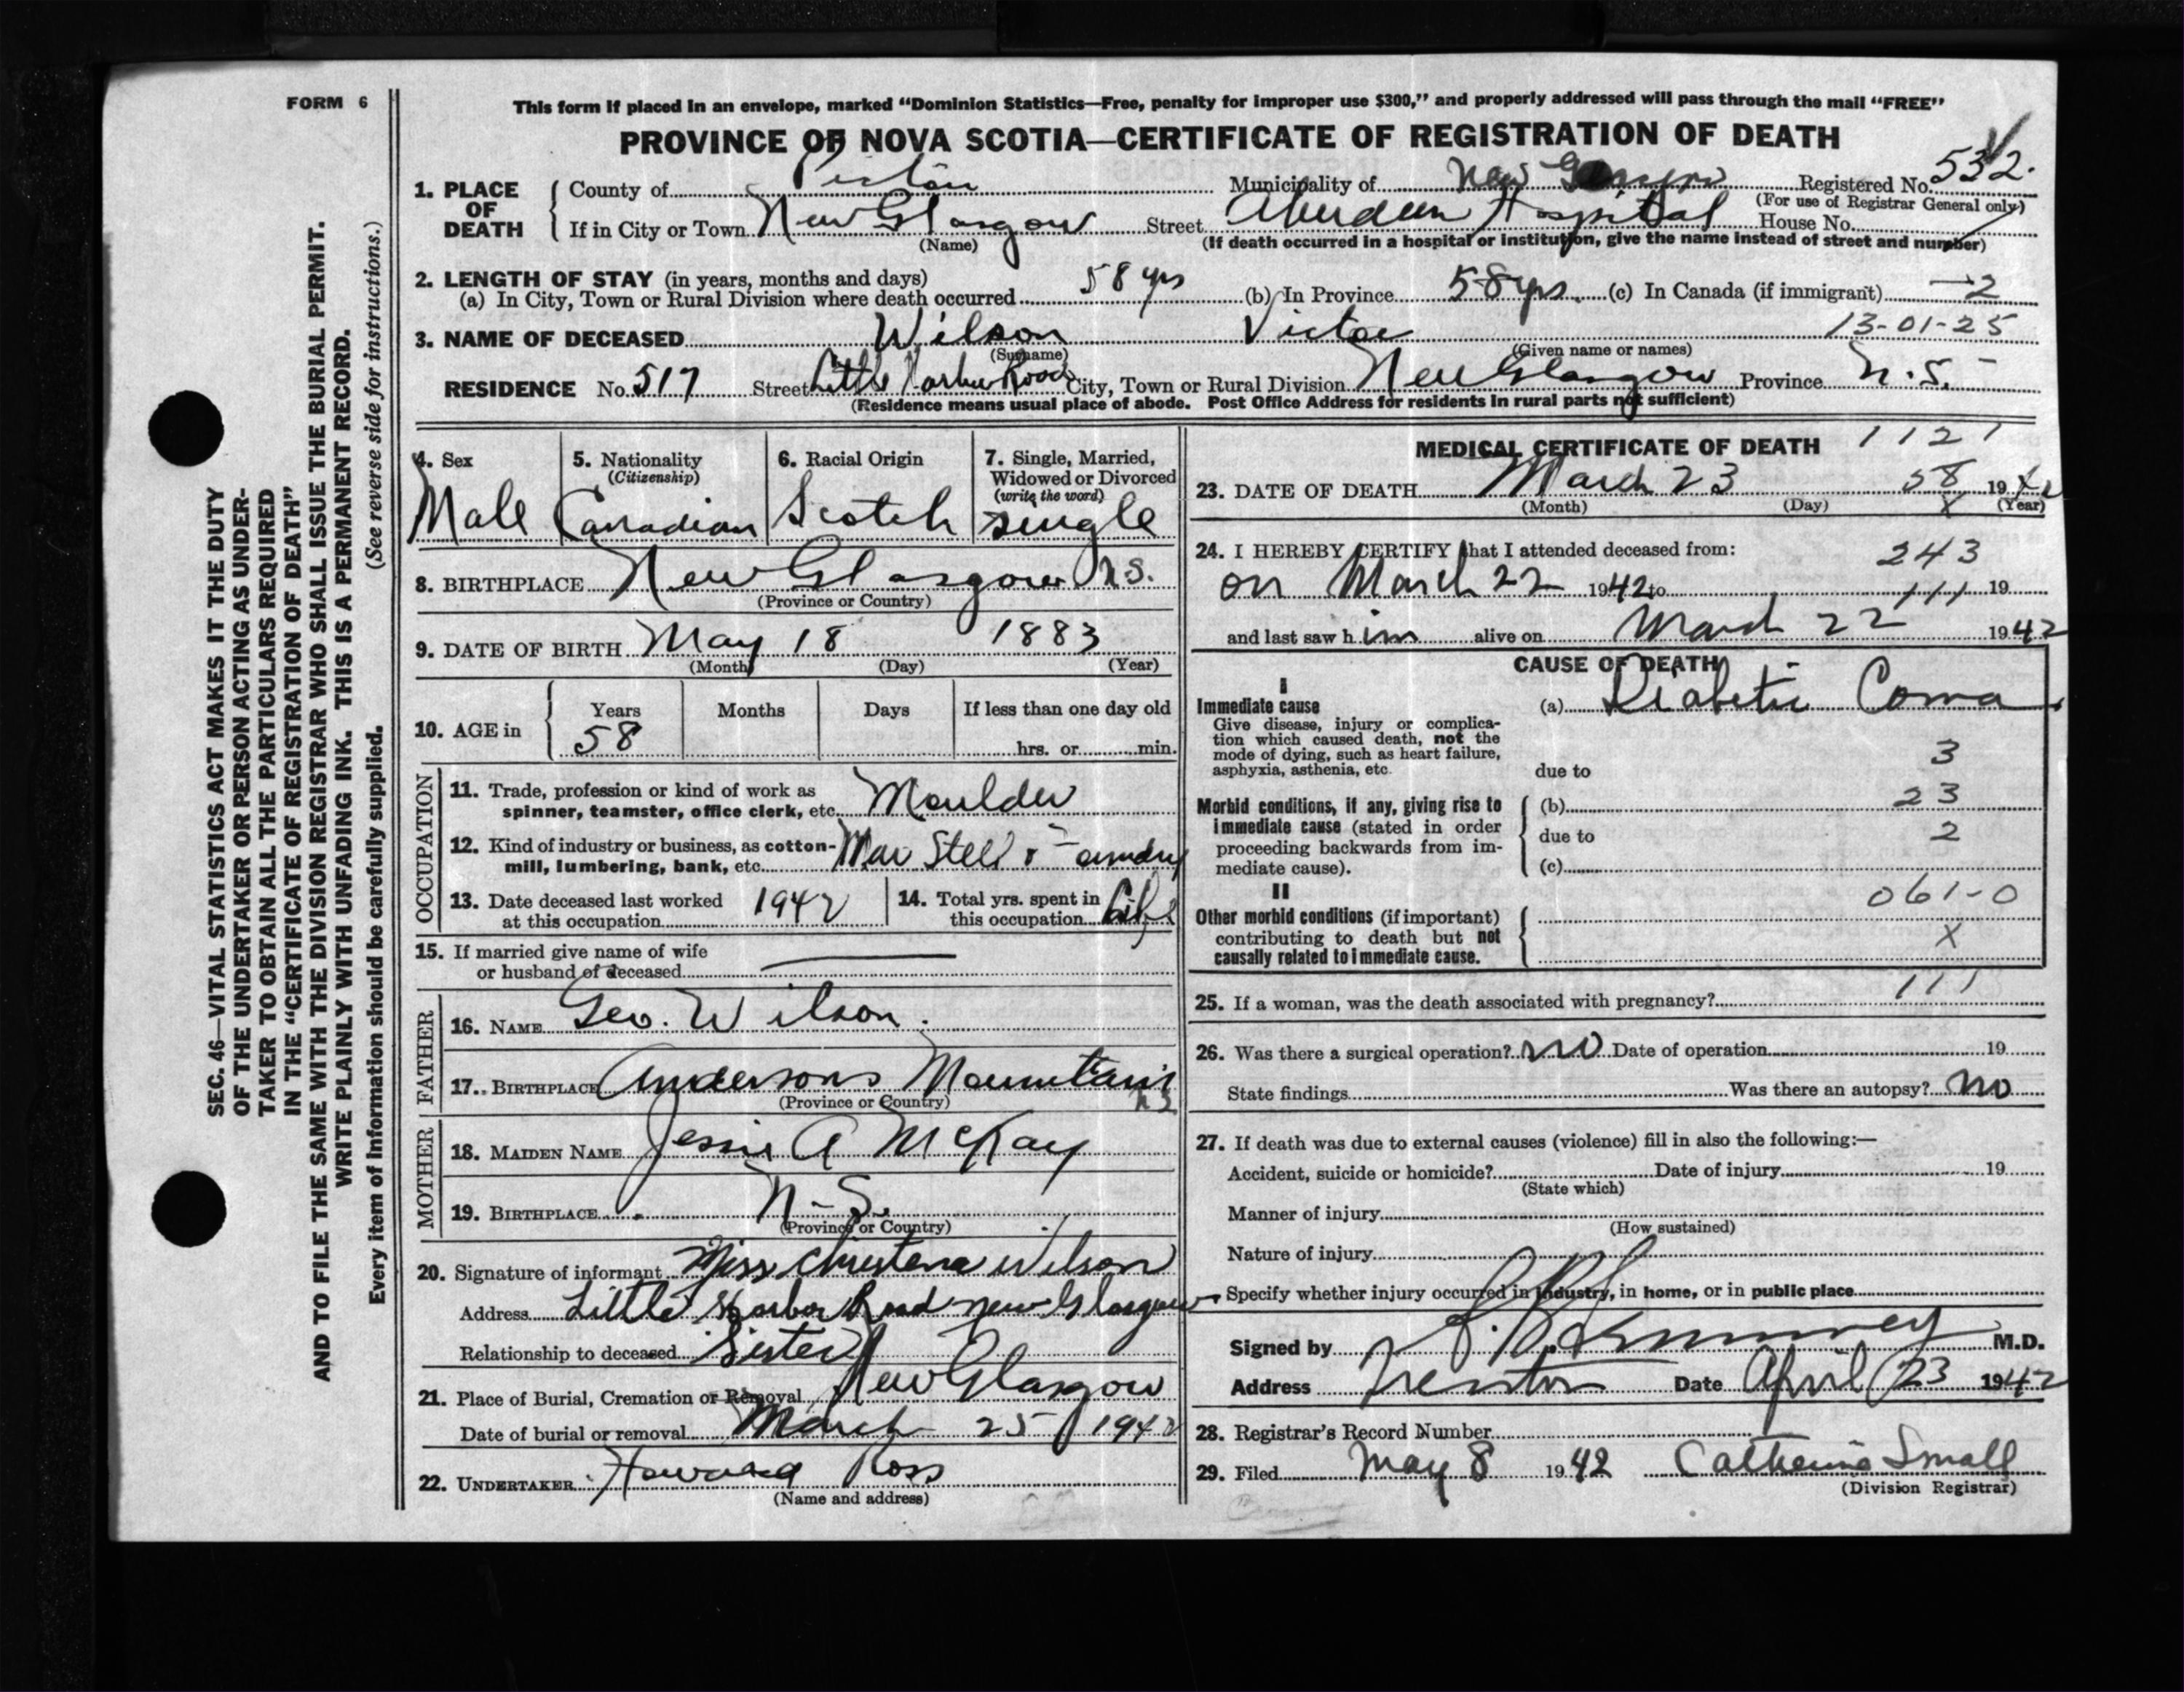 FORM 6
This form if placed in an envelope, marked "Dominion Statistics—Free, penalty for improper use $300," and properly addressed will pass through the mail "FREE"
PROVINCE OF NOVA SCOTIA—CERTIFICATE OF REGISTRATION OF DEATH
1. PLACE OF DEATH
County of Pictou Municipality of New Registered No. 532.
(For use of Registrar General only)
If in City or Town New Glasgow Street Aberdeen Hospital House No.
(Name) (If death occurred in a hospital or institution, give the name instead of street and number)
2. LENGTH OF STAY (in years, months and days)
(a) In City, Town or Rural Division where death occurred 58 yrs (b) In Province 58 yrs. (c) In Canada (if immigrant) — 2
13-01-25
3. NAME OF DECEASED Wilson Victor
(Surname) (Given name or names)
RESIDENCE No. 517 Street Little Harbor Road City, Town or Rural Division New Glasgow Province N.S.
(Residence means usual place of abode. Post Office Address for residents in rural parts not sufficient)
4. Sex 5. Nationality (Citizenship) 6. Racial Origin 7. Single, Married, Widowed or Divorced (write the word)
Male Canadian Scotch Single
8. BIRTHPLACE New Glasgow N.S.
(Province or Country)
9. DATE OF BIRTH May 18 1883
(Month) (Day) (Year)
10. AGE in Years Months Days If less than one day old
58 hrs. or min.
OCCUPATION
11. Trade, profession or kind of work as
spinner, teamster, office clerk, etc. Moulder
12. Kind of industry or business, as cotton-
mill, lumbering, bank, etc. Foundry
13. Date deceased last worked
at this occupation 1942
14. Total yrs. spent in
this occupation Life
15. If married give name of wife
or husband of deceased —
FATHER
16. NAME Geo. Wilson.
17. BIRTHPLACE Andersons Mountain N S
(Province or Country)
MOTHER
18. MAIDEN NAME Jessie A McKay
19. BIRTHPLACE N-S.
(Province or Country)
20. Signature of informant Miss Christena Wilson
Address Little Harbor Road New Glasgow
Relationship to deceased Sister
21. Place of Burial, Cremation or Removal New Glasgow
Date of burial or removal March 25 1942
22. UNDERTAKER Howard Ross
(Name and address)
MEDICAL CERTIFICATE OF DEATH 1121
23. DATE OF DEATH March 23 58 1942
(Month) (Day) X (Year)
24. I HEREBY CERTIFY that I attended deceased from: 243
on March 22 1942 to 111 19
and last saw him alive on March 22 1942
CAUSE OF DEATH
I
Immediate cause (a) Diabetic Coma
Give disease, injury or complica-
tion which caused death, not the
mode of dying, such as heart failure,
asphyxia, asthenia, etc.
due to 3
Morbid conditions, if any, giving rise to
immediate cause (stated in order
proceeding backwards from im-
mediate cause).
(b) 23
due to 2
(c)
II
061-0
Other morbid conditions (if important)
contributing to death but not
causally related to immediate cause.
X
25. If a woman, was the death associated with pregnancy? 111
26. Was there a surgical operation? No Date of operation 19
State findings Was there an autopsy? No
27. If death was due to external causes (violence) fill in also the following:—
Accident, suicide or homicide? Date of injury 19
(State which)
Manner of injury
(How sustained)
Nature of injury
Specify whether injury occurred in industry, in home, or in public place
Signed by M.D.
Address Trenton Date April 23 1942
28. Registrar's Record Number
29. Filed May 8 1942 Catherine Small
(Division Registrar)
SEC. 46—VITAL STATISTICS ACT MAKES IT THE DUTY
OF THE UNDERTAKER OR PERSON ACTING AS UNDER-
TAKER TO OBTAIN ALL THE PARTICULARS REQUIRED
IN THE "CERTIFICATE OF REGISTRATION OF DEATH"
AND TO FILE THE SAME WITH THE DIVISION REGISTRAR WHO SHALL ISSUE THE BURIAL PERMIT.
WRITE PLAINLY WITH UNFADING INK. THIS IS A PERMANENT RECORD.
Every item of Information should be carefully supplied. (See reverse side for instructions.)